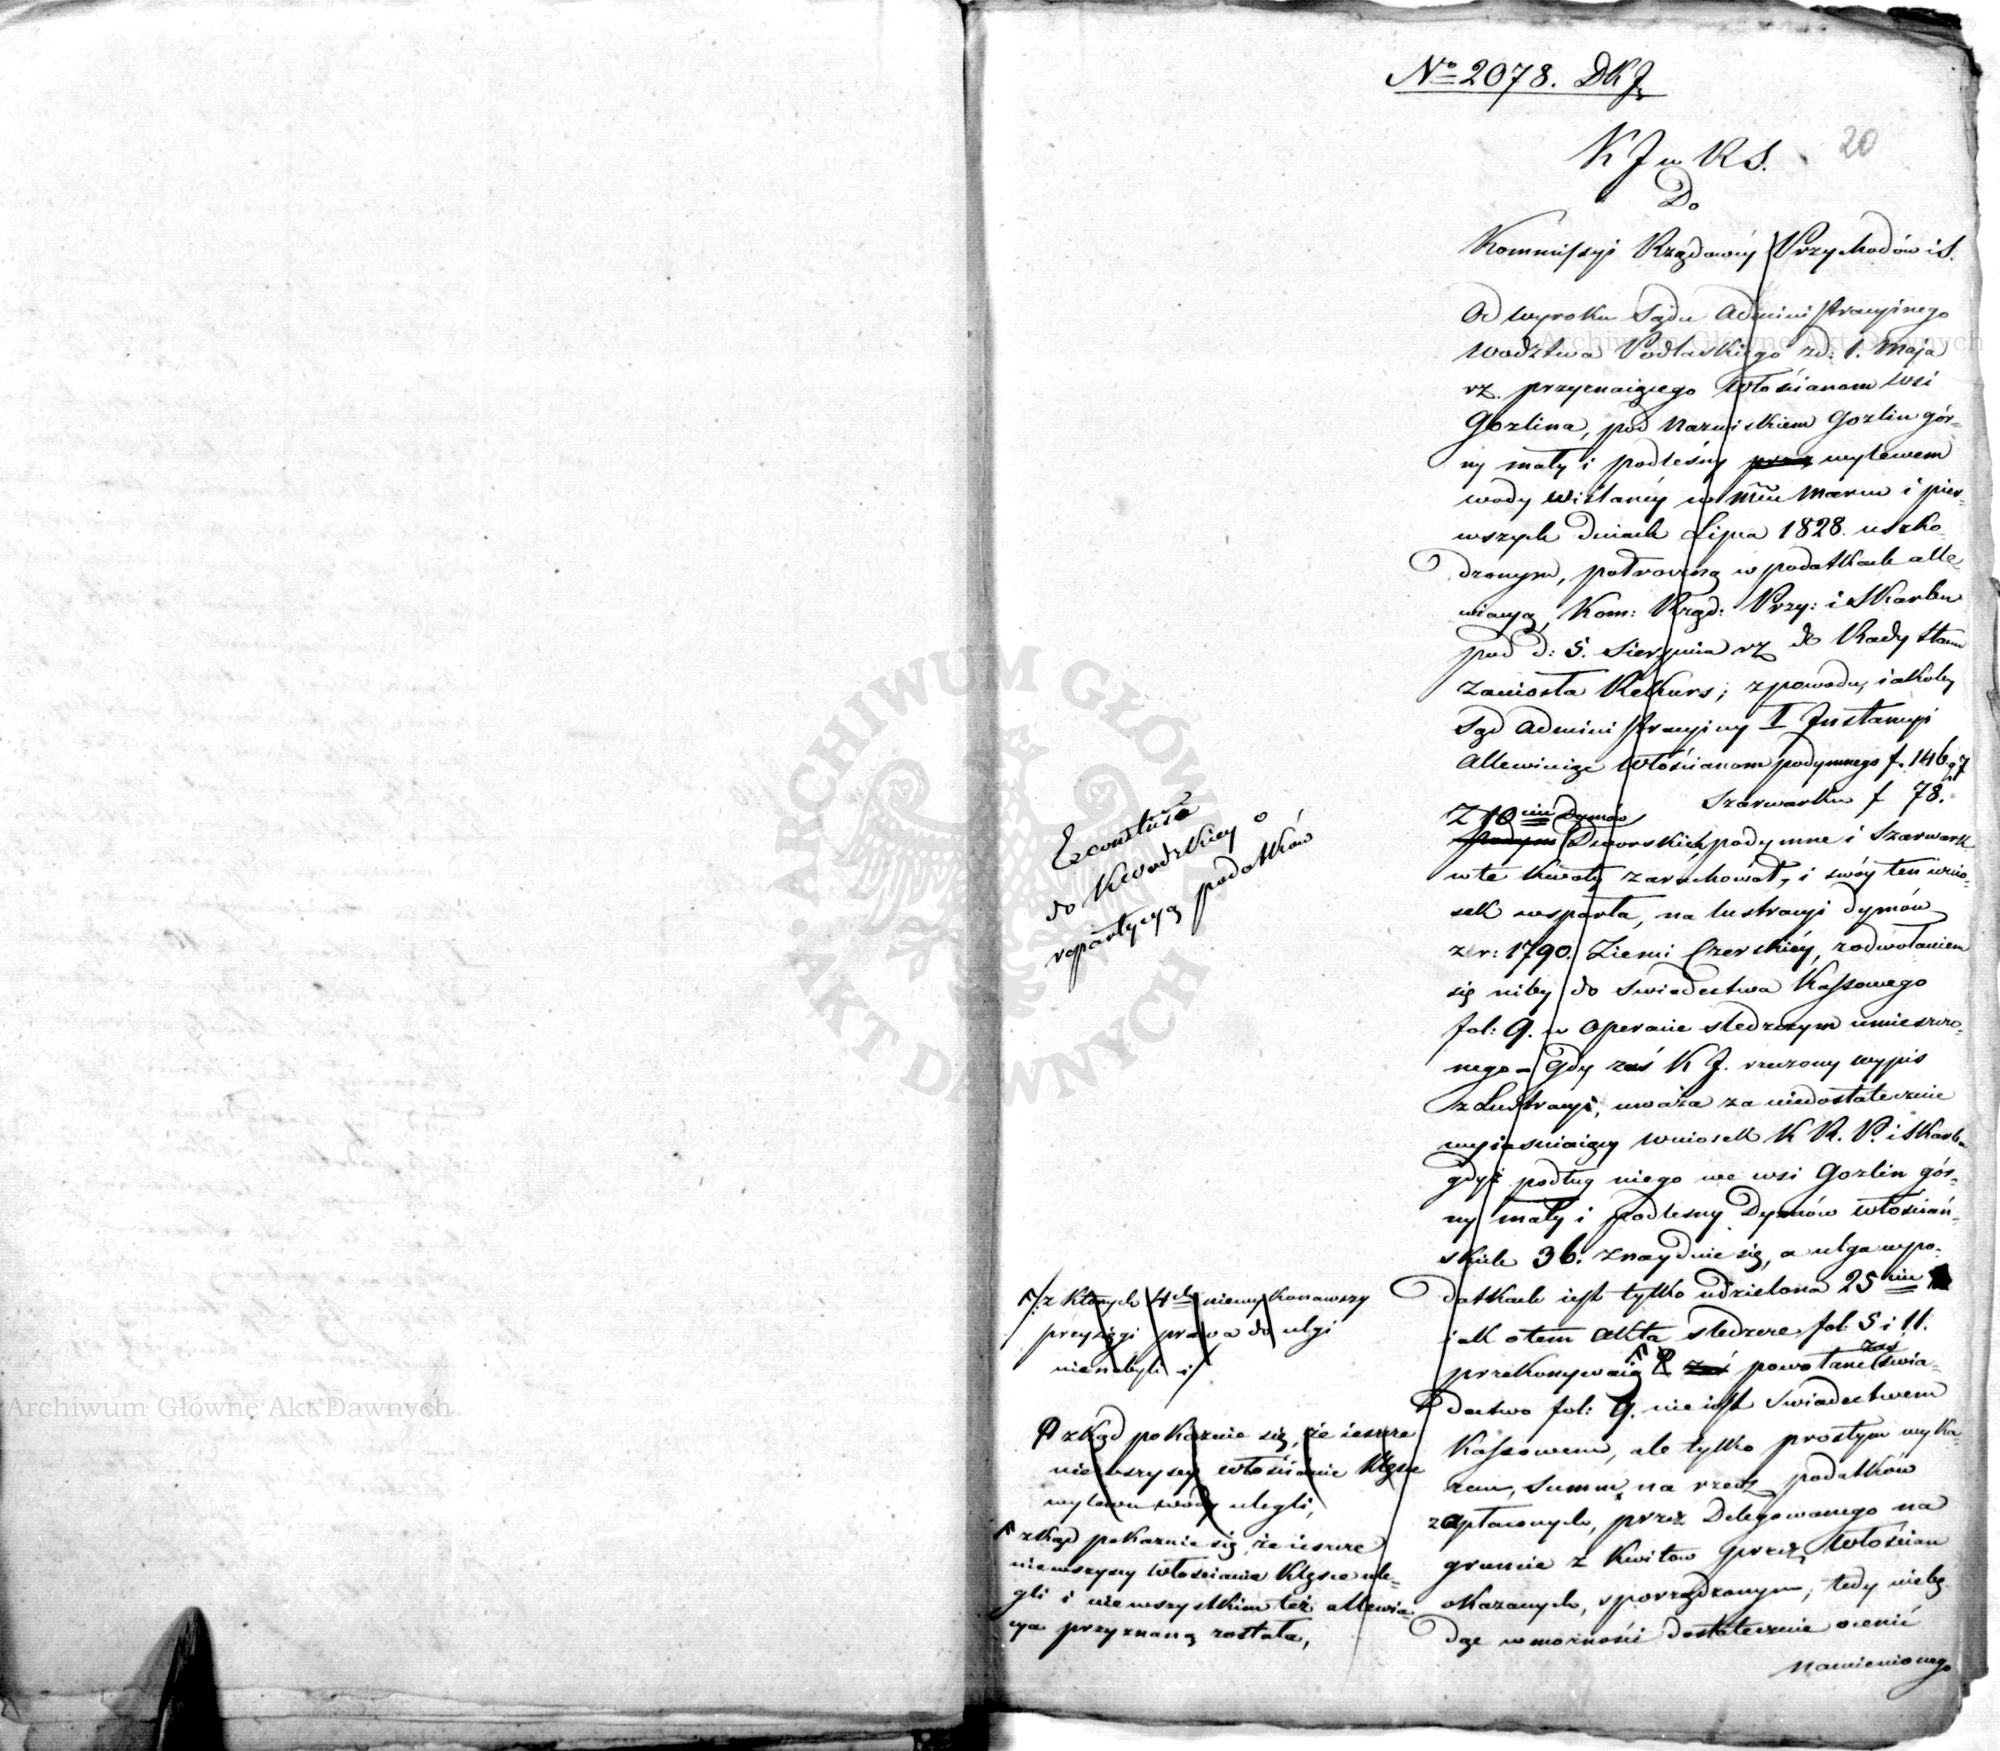 No 2078. DKJ
20
K J w R S.
Do
Kommissyi Rządowéy Przychodów i S.
Od wyroku Sądu Administracyinego
Wodztwa Podlaskiego zd: 1. Maja
rz. przyznaiącego Włościanom wsi
Gozlina, pod nazwiskiem Gozlin gór-
ny mały i podleśny przez wylewem
wody Wiślanéy w mcu Marcu i pier-
wszych dniach Lipca 1828. uszko-
dzonym, potroczną w podatkach alle-
wiacyą, Kom: Rząd: Przy: i Skarbu
pod d: 5. Sierpnia rz do Rady Stanu
zaniosła Rekurs; z powodu, iakoby
Sąd Administracyiny I Instancyi
allewiuiąc Włościanom podymnego f. 146 g 7
Szarwarku f 78.
Z 10ciu Dymów
Dworskich, podymne i Szarwark
w te kwoty zarachował, i swóy ten wnio-
sek wsparła, na lustracyi dymów
z r: 1790. Ziemi Czerskiéy, zodwołaniem
się niby do Swiadectwa Kassowego
fol: 9. w Operacie śledczym umieszczo-
nego – Gdy zaś K J. rzeczony wypis
z Lustracyi, uważa za niedostatecznie
wyiaśniaiący wniosek K R. P. i Skarbu
gdyż podług niego we wsi Gozlin gór-
ny mały i podlesny Dymów włościań-
skich 36. znayduie się, a ulga wypo-
datkach iest tylko udzielona 25ciu
iak otem Akta śledcze fol 5 i 11.
przekonywaią zaś powołane zaś świa-
dectwo fol: 9. nie iest Swiadectwem
Kassowem, ale tylko prostym wyka-
zem, Summ, na rzecz podatków
zapłaconych, przez Delegowanego na
gruncie z Kwitów przez Włościan
okazanych, sporządzonym, tedy niebę-
dąc w możności dostatecznie ocenić
namienionego
do Kwodzkiey o
repartycyą podatków
z których 4ch niewykonawszy
przysięgi prawa do ulgi
nienabyli i
zkąd pokaznie się, że ieszcze
niewszyscy włościanie klęsce
wylewu wody ulegli,
zkąd pokaznie się, że ieszcze
niewszyscy Włościanie klęsce ule-
gli i niewszystkim też allewia-
cya przyznaną została,
Archiwum Główne Akt Dawnych
Archiwum Główne Akt Dawnych
ARCHIWUM GŁÓWNE
AKT DAWNYCH